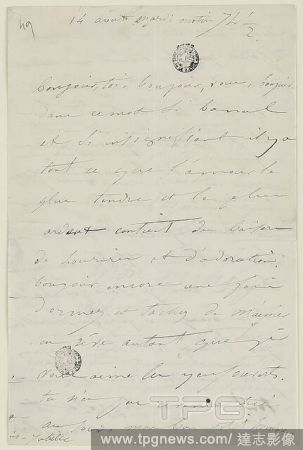 49
14 août mardi matin 7h ½.
Bonjour toi, bonjour, vous, bonjour
dans ce mot si banal
et si insignifiant il y a
tout ce que l'amour le
plus tendre et le plus
ardent contient de baisers
de sourires et d'adoration.
Bonjour encore une fois
dormez et tâchez de m'aimer
en rêve autant que je
vous aime les yeux ouverts.
TPG
www.tpgnews.com | 達志影像